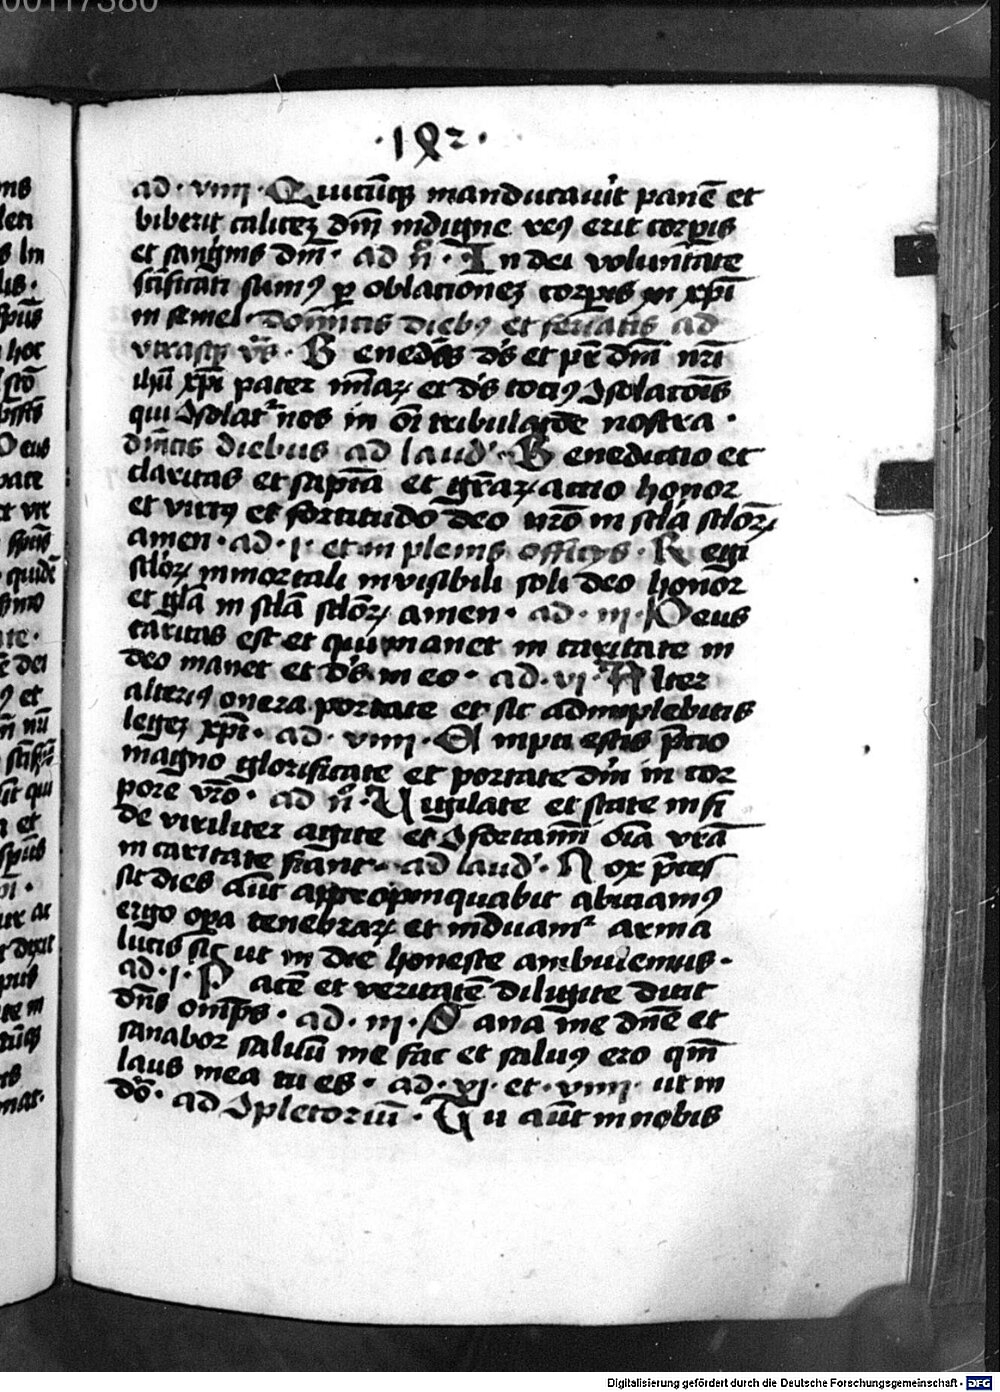 ·182·
ad · viiii · Quicūq̄ manducauīt panē et
biberit calicez dn̄i indigne reꝰ erit corpis
et sangīnis dn̄i · ad n̄ · In dei volun̄tate
sc̄ificati sumꝰ ꝑ oblationez corpis ih̄u xp̄i
in semel · domīcis diebꝰ et feriatis ad
vtrasqꝫ vs̄ · Benedc̄s ds̄ et pr̄ dn̄i nr̄i
ih̄u xp̄i pater mīaꝝ et ds̄ totiꝰ ꝯsolatōis
qui ꝯsolatˀ nos in oī tribulatōe nostra ·
dn̄icis diebus ad laud̾ · Benedictio et
claritas et sapīa et gr̄aꝝ actio honor
et virtꝰ et fortitudo deo nr̄o in scl̄a scl̄oꝝ
amen · ad · i · et in plenis officijs · Regi
scl̄oꝝ inmortali invisibili soli deo honor
et gl̄a in scl̄a scl̄oꝝ amen · ad · iii · Deus
caritas est et qui manet in caritate in
deo manet et ds̄ in eo · ad · vi · Alter
alteriꝰ onera portate et sic adimplebitis
legez xp̄i · ad · viiii · Empti estis p̄cio
magno glorificate et portate dm̄ in cor
pore vr̄o · ad n̄ · Vigilate et state in fi
de viriliter agite et ꝯfortamī oīa vr̄a
in caritate fiant · ad laud̾ · Nox p̄ces
sit dies aūt appropinquabit abiciamꝰ
ergo opa tenebraꝝ et induamˀ arma
lucis sic ut in die honeste ambulemus ·
ad · i · Pacē et veritatē diligite dicit
dn̄s omīps · ad · iii · Sana me dn̄e et
sanabor saluū me fac et saluꝰ ero qm̄
laus mea tu es · ad · vi · et · viiii · ut in
do · ad ꝯpletoriū · Tu aūt in nobis
Digitalisierung gefördert durch die Deutsche Forschungsgemeinschaft - DFG